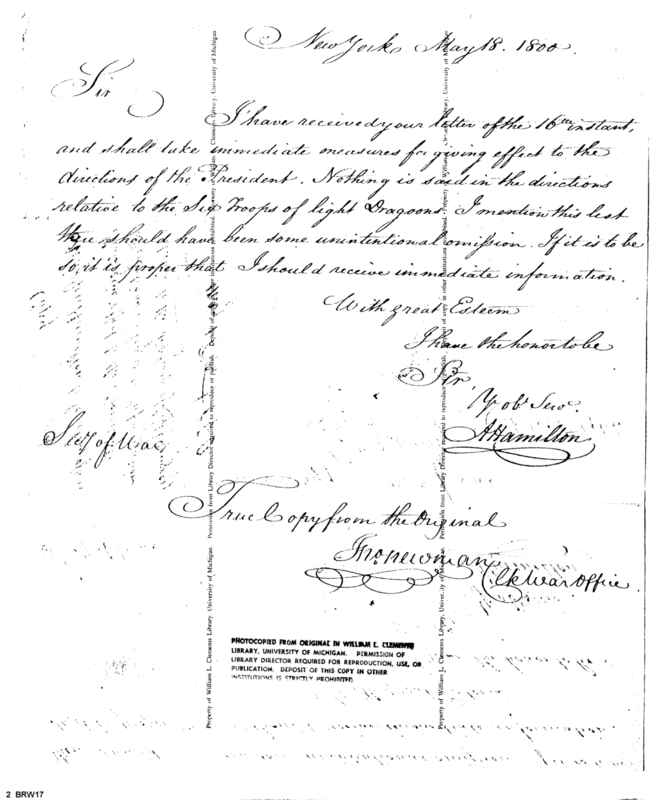 New York May 18. 1800.
Sir
I have received your letter of the 16th instant,
and shall take immediate measures for giving effect to the
directions of the President. Nothing is said in the directions
relative to the Six Troops of light Dragoons. I mention this lest
there should have been some unintentional omission. If it is to be
so, it is proper that I should receive immediate information.
With great Esteem
I have the honor to be
Sir
Yr obt Servt
A Hamilton
Secy of War
True Copy from the Original
Jno. Newman
Clk War Office
Property of William L. Clements Library, University of Michigan
Permission from Library Director required to reproduce or publish.
PHOTOCOPIED FROM ORIGINAL IN WILLIAM L. CLEMENTS
LIBRARY, UNIVERSITY OF MICHIGAN. PERMISSION OF
LIBRARY DIRECTOR REQUIRED FOR REPRODUCTION, USE, OR
PUBLICATION. DEPOSIT OF THIS COPY IN OTHER
INSTITUTIONS IS STRICTLY PROHIBITED.
2 BRW17